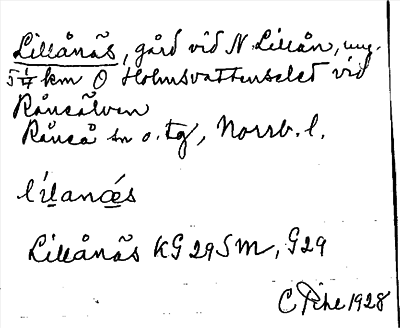 Lillånäs, gård vid N Lillån, ung.
5 1/4 km O Holmsvattenselet vid
Råneälven
Råneå sn o. tg, Norrb. l.
lílanǽs
Lillånäs KG 29 SM, G29
C Pihl 1928